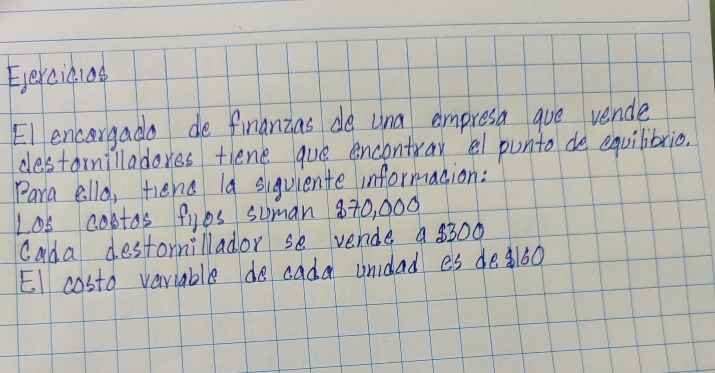 Ejercicios
El encargado de finanzas de una empresa que vende
destornilladores tiene que encontrar el punto de equilibrio.
Para ello, tiene la siguiente información:
Los costos fijos suman $70,000
Cada destornillador se vende a $300
El costo variable de cada unidad es de $160